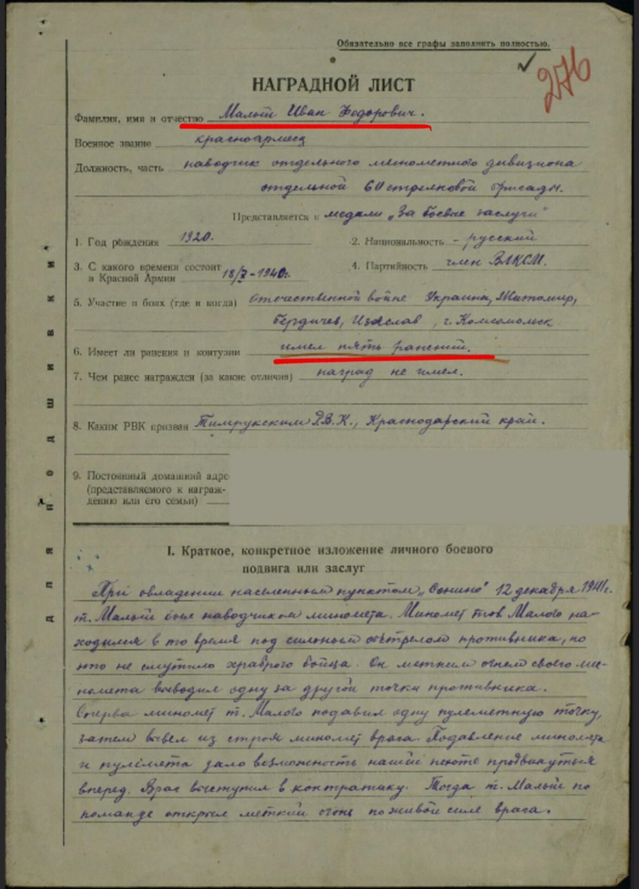 Обязательно все графы заполнять полностью.
276
НАГРАДНОЙ ЛИСТ
Фамилия, имя и отчество Малый Иван Федорович.
Военное звание красноармеец
Должность, часть наводчик отдельного минометного дивизиона
отдельной 60 стрелковой бригады.
Представляется к медали „За боевые заслуги"
1. Год рождения 1920. 2. Национальность - русский
3. С какого времени состоит
в Красной Армии 18/X-1940г. 4. Партийность член ВЛКСМ.
5. Участие в боях (где и когда) отечественной войне Украина, Житомир,
Бердичев, Изяслав, г. Комсомольск
6. Имеет ли ранения и контузии имел пять ранений.
7. Чем ранее награжден (за какие отличия) наград не имел.
8. Каким РВК призван Тимрукским Р.В.К., Краснодарский край.
9. Постоянный домашний адре
(представляемого к награж-
дению или его семьи)
Для подшивки
I. Краткое, конкретное изложение личного боевого
подвига или заслуг
При овладении населенным пунктом „Сонино" 12 декабря 1941г.
т. Малый был наводчиком миномета. Миномет тов Малого на-
ходился в то время под сильным обстрелом противника, но
это не смутило храброго бойца. Он метким огнем своего ми-
номета выводил одну за другой точки противника.
Сперва миномет т. Малого подавил одну пулеметную точку,
затем вывел из строя миномет врага. Подавление миномета
и пулемета дало возможность нашей пехоте продвинуться
вперед. Враг выступил в контратаку. Тогда т. Малый по
команде открыл меткий огонь по живой силе врага.